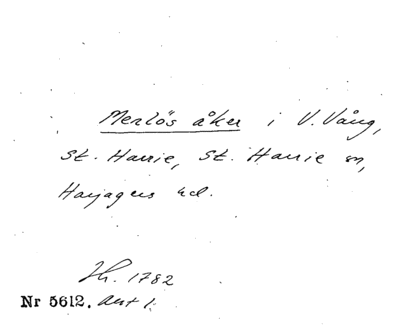 Merlös åker i V. Vång,
St. Harrie, St. Harrie sn,
Harjagers hd.
Jh. 1782
Nr 5612. Akt 1.